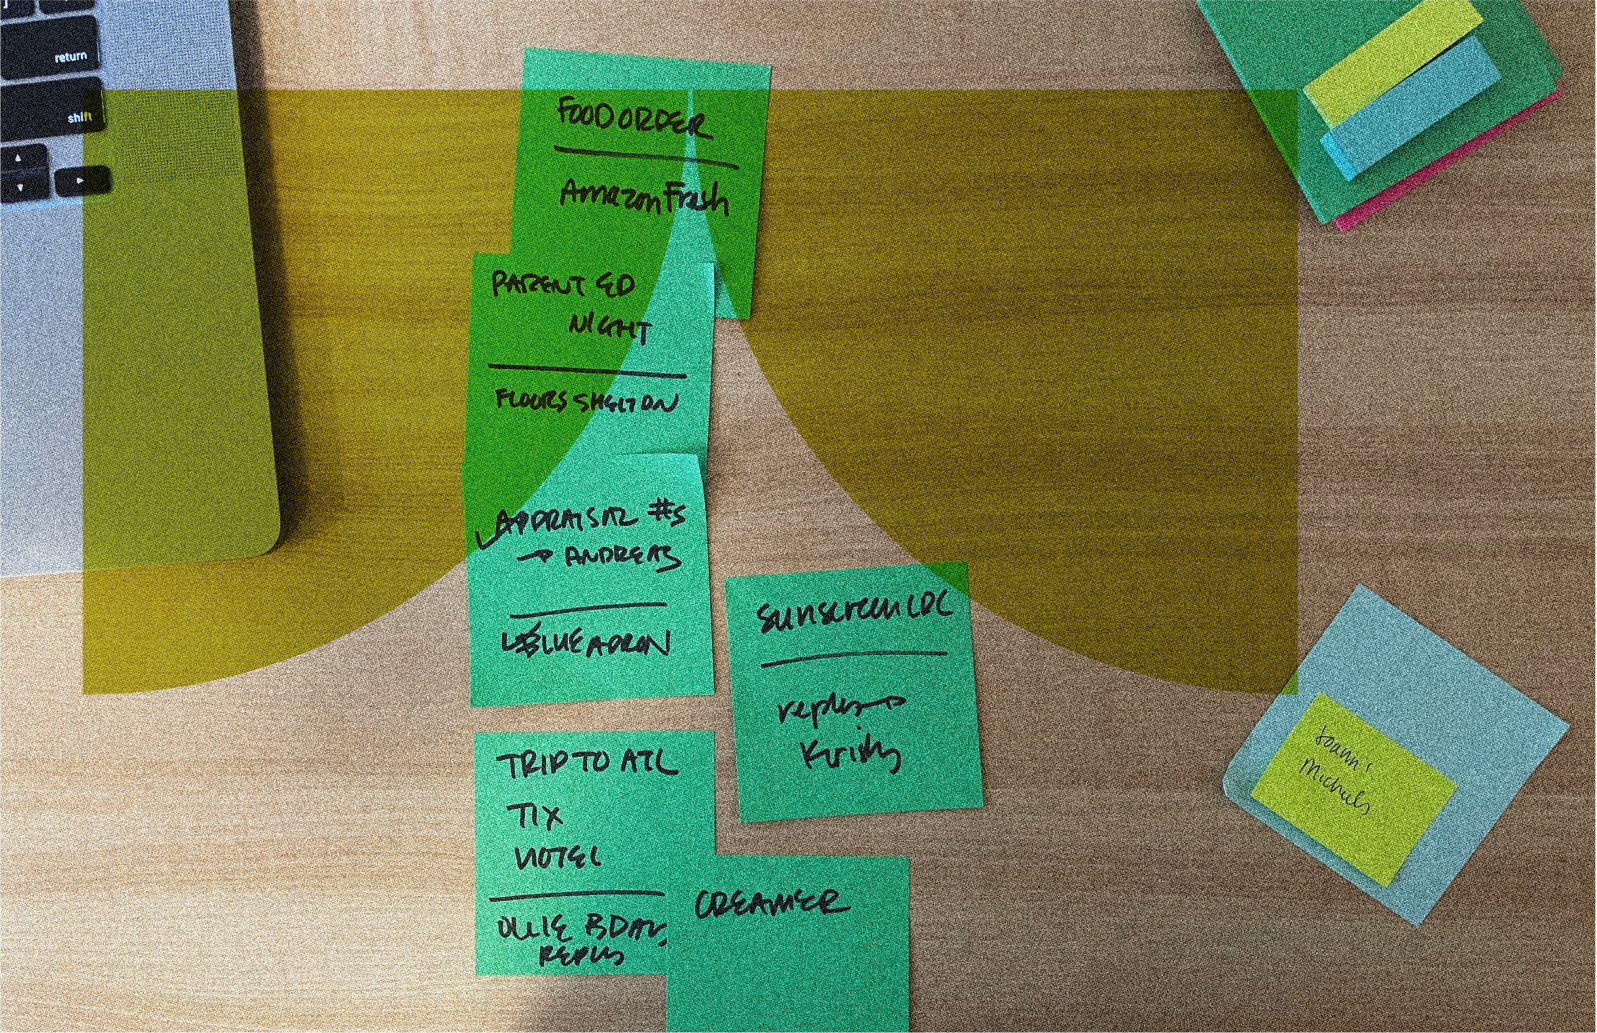 return
shift
FOOD ORDER
Amazon Fresh
PARENT ED
NIGHT
FLOORS SHELTON
APPRAISAL #s
→ ANDREAS
BLUE APRON
Sunscreen LDC
reply →
Kristy
TRIP TO ATL
TIX
HOTEL
OLLIE BDAY
REPLY
CREAMER
Joann's
Michaels